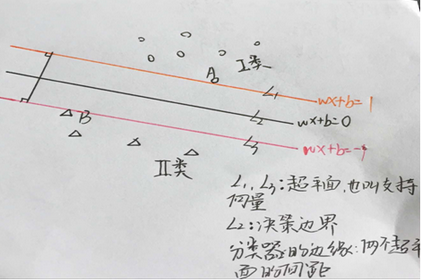 A
I类
L₁
wx+b=1
L₂
wx+b=0
B
L₃
wx+b=-1
II类
L₁, L₃:超平面,也叫支持
向量
L₂:决策边界
分类器的边缘:两个超平
面的间距